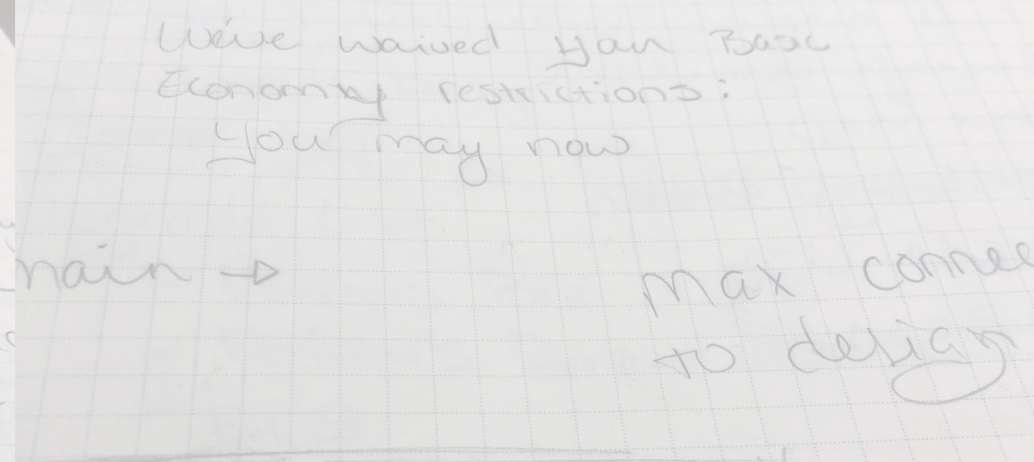 We've waived your Basic
Economy restrictions:
You may now
main →
max connec
to design